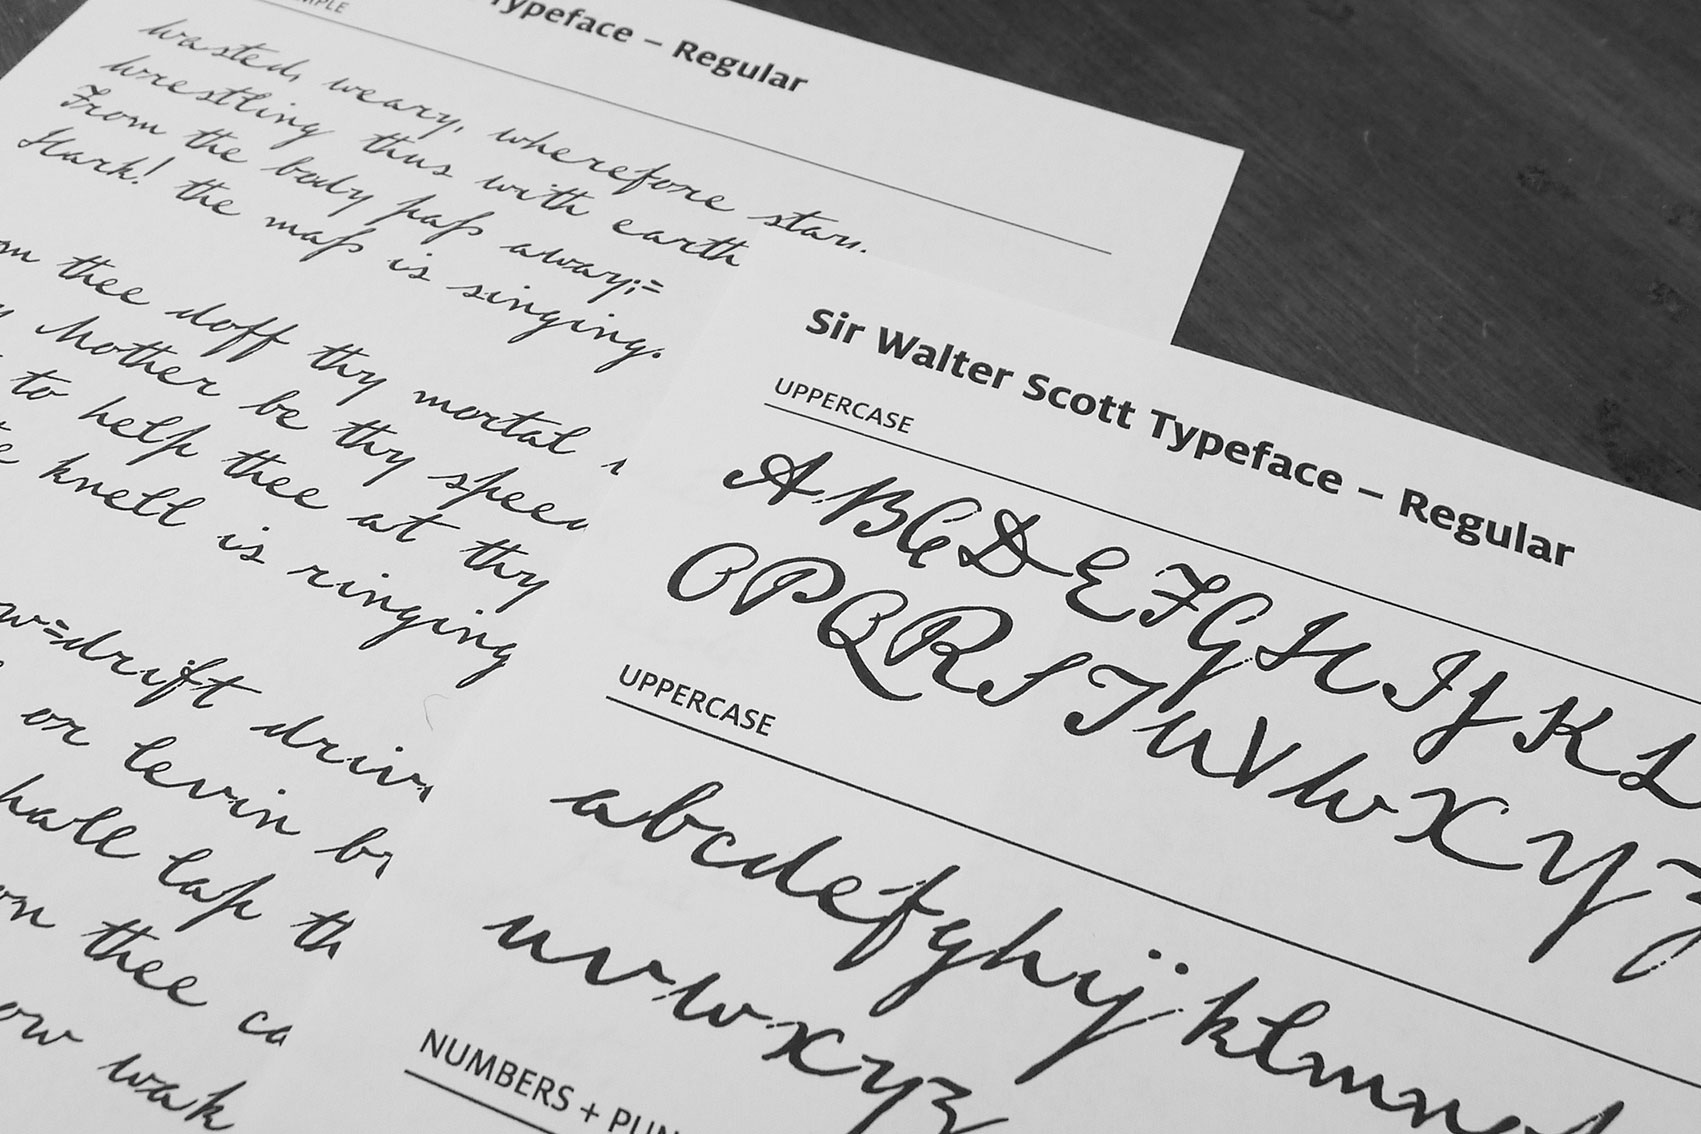 Typeface – Regular
wasted, weary, wherefore stay.
Wrestling thus with earth
From the body pass away;=
Hark! the mass is singing.
thee doff thy mortal
Mother be thy
to help thee at thy
knell is ringing
drift
or levin
lap
thee
Sir Walter Scott Typeface – Regular
UPPERCASE
A B C D E F G H I J K L
O P Q R S T U V W X Y Z
UPPERCASE
a b c d e f g h i j k l m n o
u v w x y z
NUMBERS +